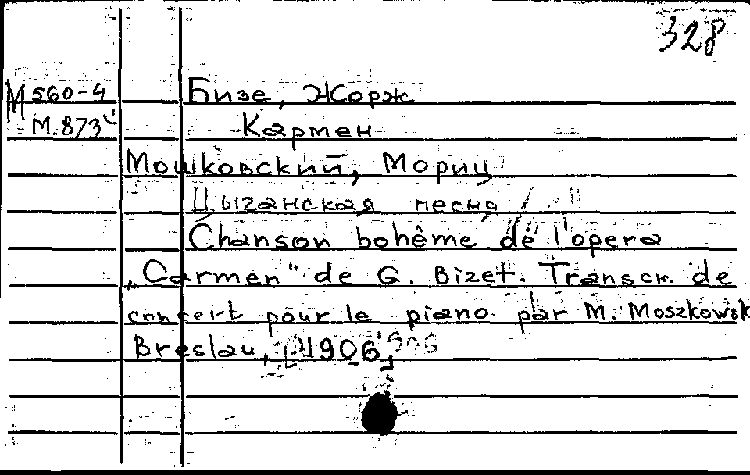 328
М 560-4 Бизе, Жорж
М.873 Кармен
Мошковский, Мориц
Цыганская песня /
Chanson bohême de l'opera
„Carmen" de G. Bizet. Transcr. de
concert pour le piano par M. Moszkowsk
Breslau, [1906]